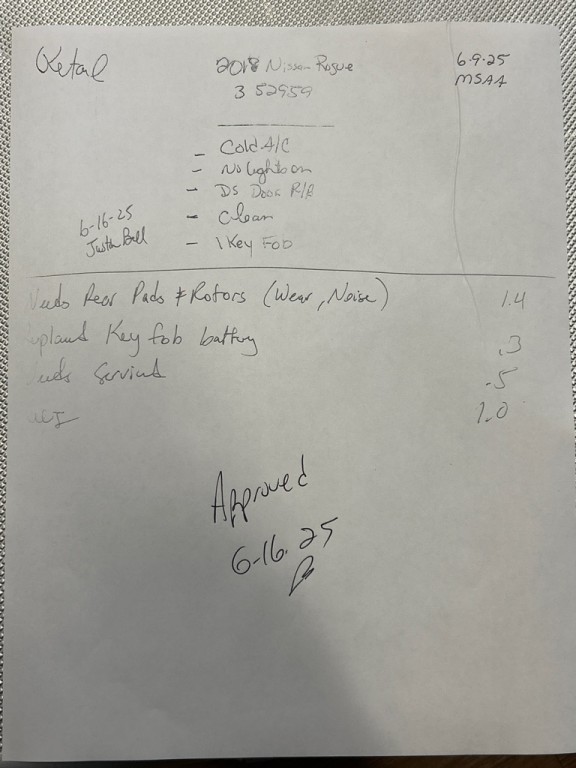 Retail
2018 Nissan Rogue
352959
6.9.25
MSAA
- Cold A/C
- No Lights on
- DS Door R/R
- Clean
- 1 Key FOB
6-16-25
Justin Ball
Needs Rear Pads & Rotors (Wear, Noise) 1.4
Key fob battery .3
Needs Serviced .5
1.0
Approved
6-16.25